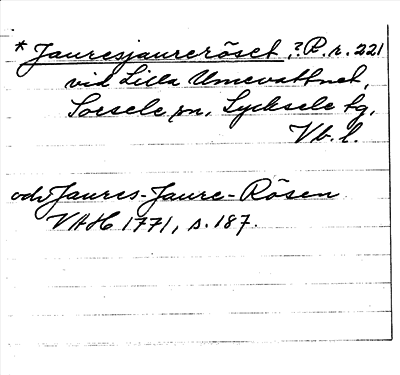 * Jauresjaureröset, ? R. r. 221
vid Lilla Umevattnet,
Sorsele sn, Lycksele tg,
Vb. l.
och Jaures-Jaure-Rösen
VAH 1771, s. 187.